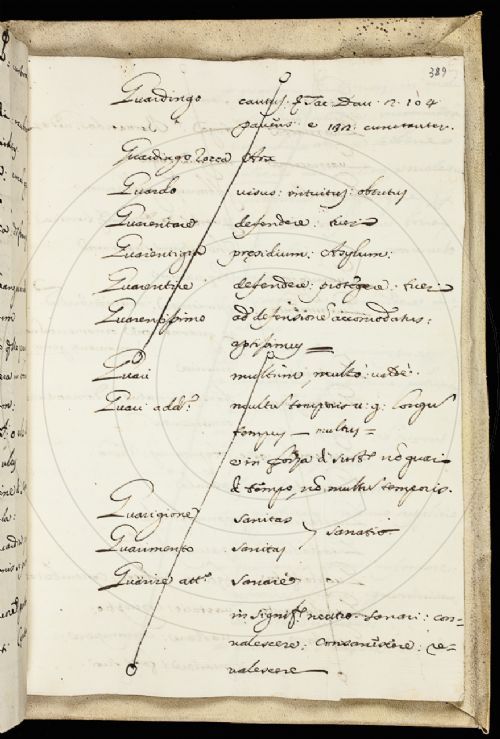 389
Guardingo cautus. Tac. Dav. 2. 104
pavens. e 132. cunctanter.
Guardingo Rocca Arx
Guardo visus: intuitus: obtutus
Guarentare defendere: tueri
Guarentigia presidium: Asylum:
Guarentire defendere: protegere: tueri
Guarentissimo ad defensione accomodatus:
aptissimus
Guari multum, multo: valde:
Guari add. multus temporis u: g: longus
tempus — multus =
e in forza di sust. no guari
di tempo, no multus temporis.
Guarigione sanitas
Guarimento sanitas } sanatio
Guarire att. sanare
in signif. neutro. sanari: con-
valescere: consanescere: re-
valescere